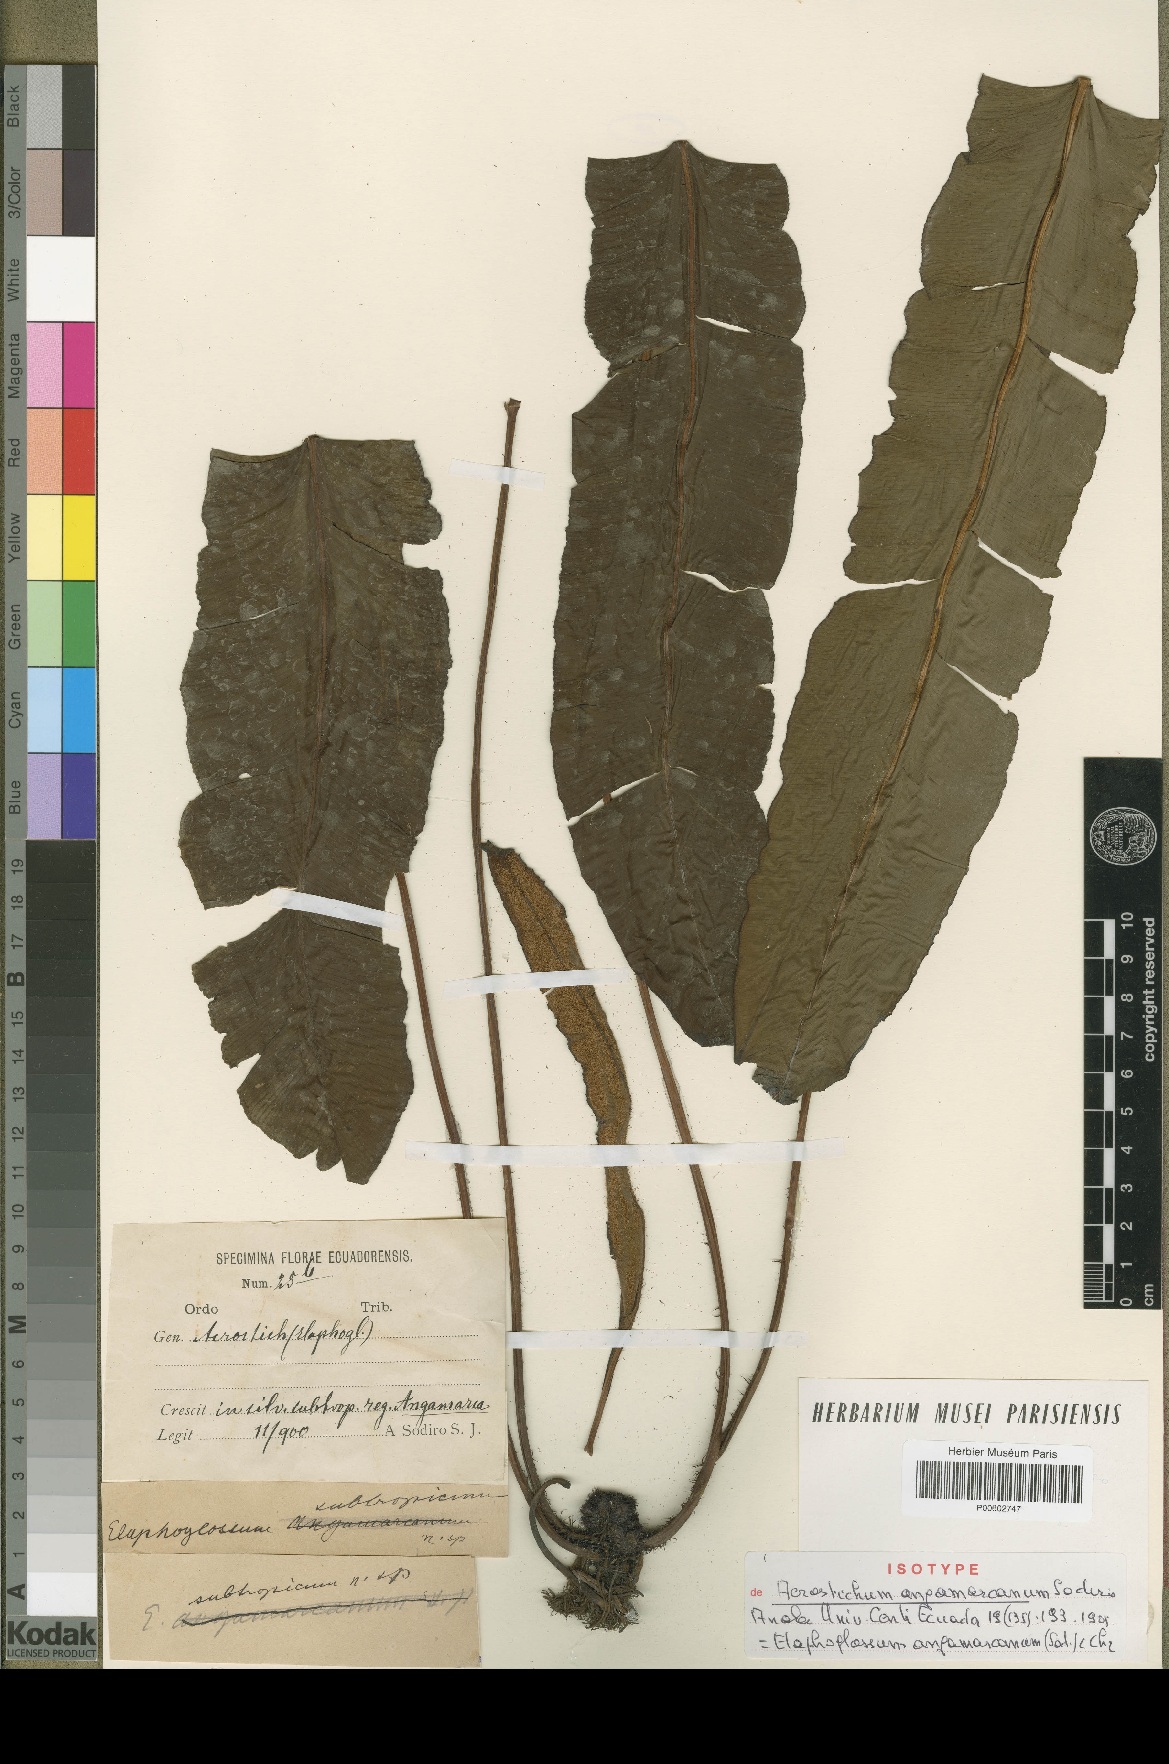 Black
3/Color
White
Magenta
Red
Yellow
Green
Cyan
Blue
19
18
17
B
16
15
14
13
12
11
10
9
8
M
7
6
5
4
3
2
1
A
Kodak
LICENSED PRODUCT
10
9
8
7
6
5
4
3
2
1
0
cm
copyright reserved
SPECIMINA FLORAE ECUADORENSIS.
Num. 25 b
Ordo Trib.
Gen. Acrostich (Elaphogl.)
Crescit in silv. subtrop. reg. Angamarca.
Legit 11/900 A SODIRO S. J.
subtropicum
Elaphoglossum angamarcanum
n. sp
subtropicum n. sp
E. angamarcanum n. sp
HERBARIUM MUSEI PARISIENSIS
Herbier Muséum Paris
P00602747
ISOTYPE
de Acrostichum angamarcanum Sodiro
Univ. Ecuada 19 (135) : 193 .
= Elaphoglossum angamarcanum (Sod.)